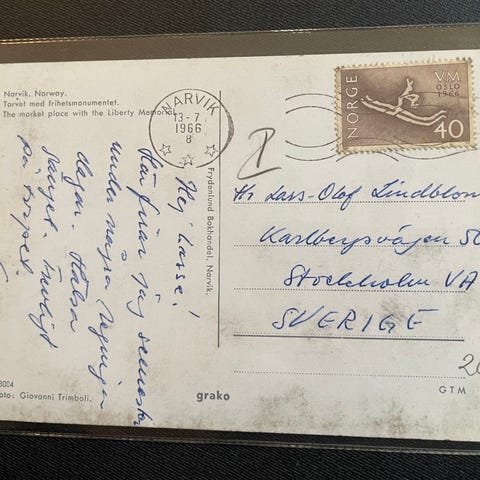 Narvik. Norway.
Torvet med frihetsmonumentet.
The market place with the Liberty Memorial.
NARVIK
13-7
1966
8
NORGE
VM
OSLO
1966
40
Hej Lasse!
Här firar jag semester
under några regniga
dagar. Hälsa
på torpet.
Frydenlund Bokhandel, Narvik.
Hr Lars-Olof Lindblom
Karlbergsvägen 50
Stockholm VA
SVERIGE
20
GTM
8004
Foto: Giovanni Trimboli.
grako